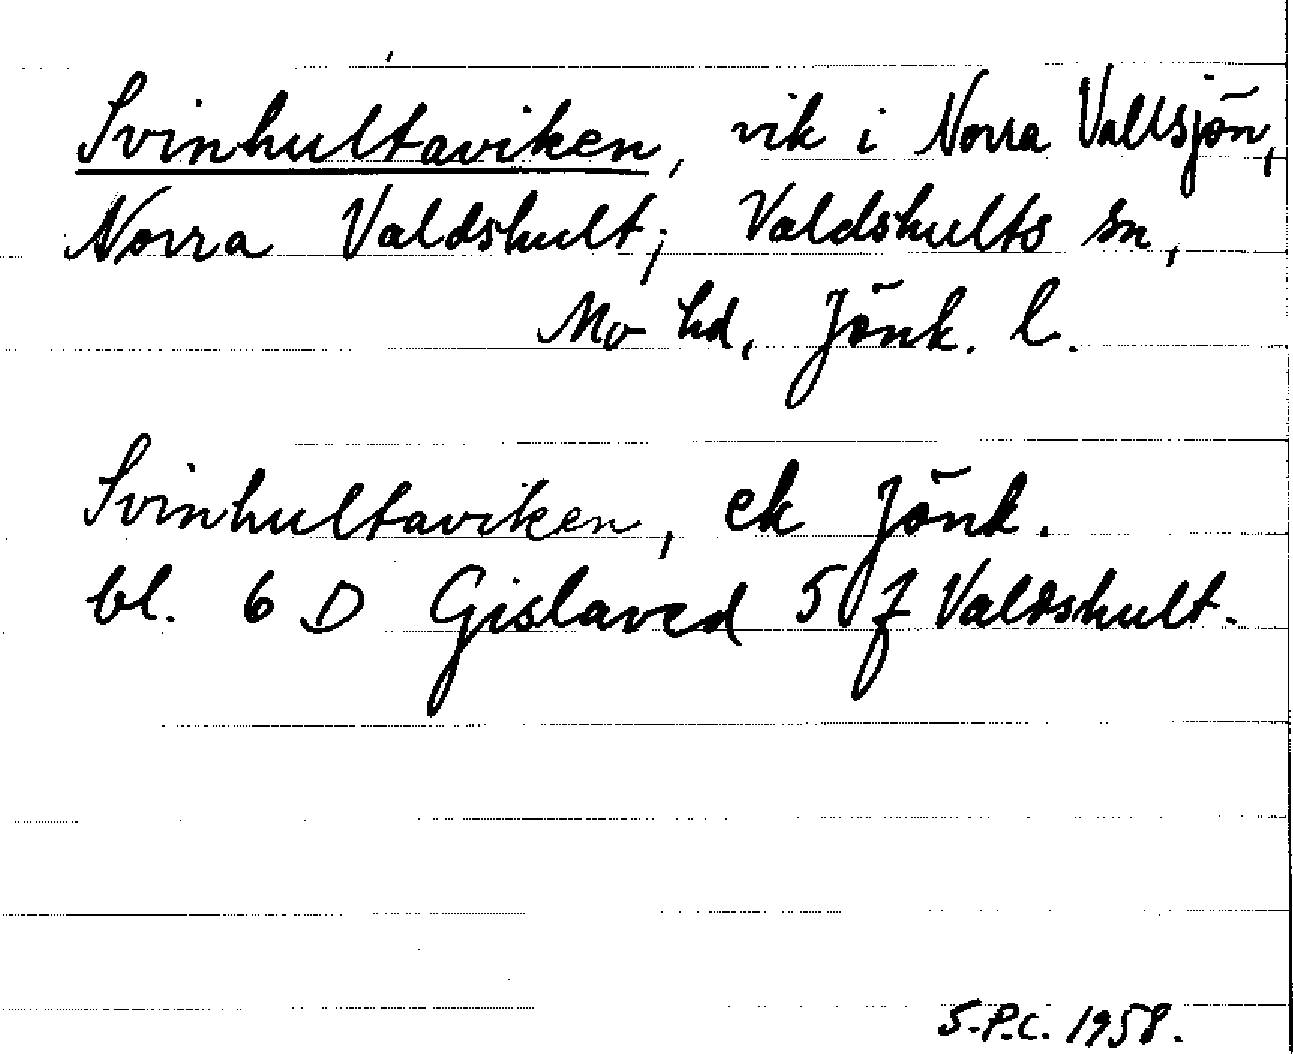 Svinhultaviken, vik i Norra Vallsjön,
Norra Valdshult, Valdshults sn,
Mo hd, Jönk. l.
Svinhultaviken, ek Jönk.
bl. 6 D Gislaved 5 f Valdshult.
S.P.C. 1958.